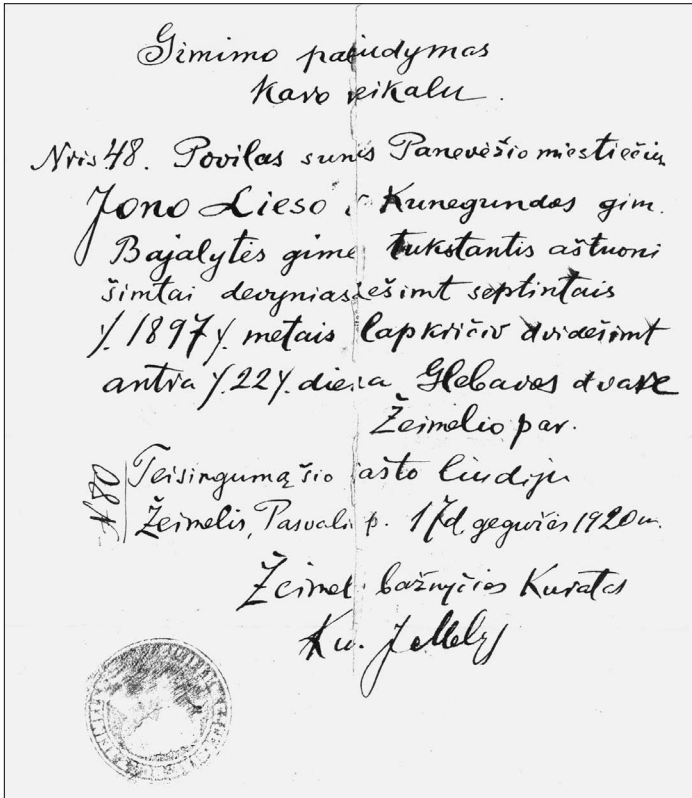 Gimimo paliudymas
Karo reikalu.
Nris 48. Povilas sunus Panevėžio miestiečių
Jono Lieso ir Kunegundos gim.
Bajalytės gimė tukstantis aštuoni
šimtai devyniasdešimt septintais
/. 1897 /. metais lapkričio dvidešimt
antra /. 22 /. diena Glebavos dvare
Žeimelio par.
Teisingumą šio rašto liudiju
Žeimelis, Pasvalio p. 17 d. gegužės 1920 m.
№ 80
Žeimel. bažnyčios Kuratas
Kun.